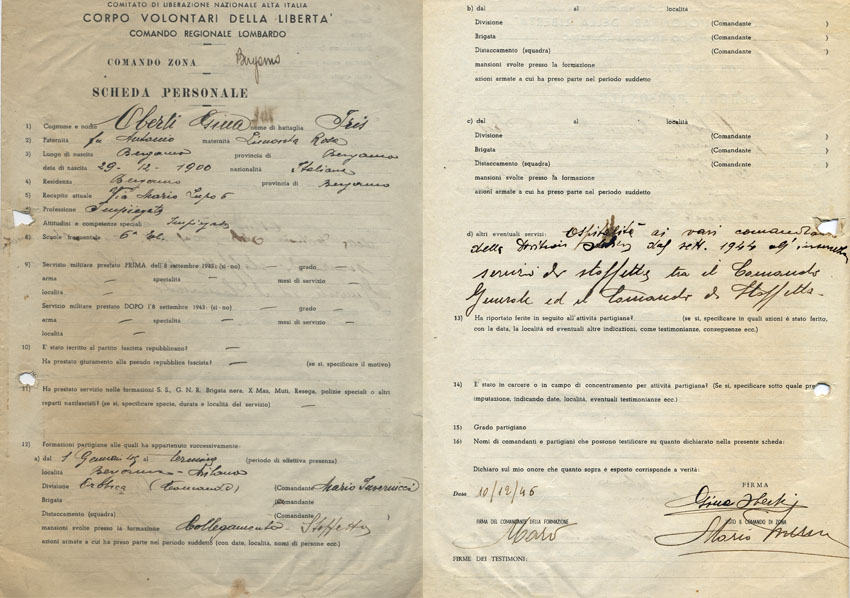 COMITATO DI LIBERAZIONE NAZIONALE ALTA ITALIA
CORPO VOLONTARI DELLA LIBERTA'
COMANDO REGIONALE LOMBARDO
COMANDO ZONA Bergamo
SCHEDA PERSONALE
1) Cognome e nome Oberti Gina nome di battaglia Iris
2) Paternità fu Antonio maternità Rosa
3) Luogo di nascita Bergamo provincia di Bergamo
data di nascita 29 - 12 - 1900 nazionalità Italiana
4) Residenza Bergamo provincia di Bergamo
5) Recapito attuale Via Mario Lupo 6
6) Professione Impiegata
Attitudini e competenze speciali Impiegata
8) Scuole frequentate 6ª
9) Servizio militare prestato PRIMA dell'8 settembre 1943: (si-no) — grado —
arma — specialità — mesi di servizio —
località —
Servizio militare prestato DOPO l'8 settembre 1943: (si-no) — grado —
arma — specialità — mesi di servizio —
località —
10) E' stato iscritto al partito fascista repubblicano? —
Ha prestato giuramento alla pseudo repubblica fascista? — (se si, specificare il motivo)
11) Ha prestato servizio nelle formazioni S. S., G. N. R., Brigata nera, X Mas, Muti, Resega, polizie speciali o altri
reparti nazifascisti? (se si, specificare specie, durata e località del servizio) —
12) Formazioni partigiane alle quali ha appartenuto successivamente:
a) dal 1 Gennaio al termine (periodo di effettiva presenza)
località Bergamo - Milano
Divisione (Comando) (Comandante Mario Invernicci)
Brigata (Comandante
Distaccamento (squadra) (Comandante
mansioni svolte presso la formazione Collegamento - Staffetta
azioni armate a cui ha preso parte nel periodo suddetto (con date, località, nomi di persone ecc.)
b) dal al località
Divisione (Comandante )
Brigata (Comandante )
Distaccamento (squadra) (Comandante )
mansioni svolte presso la formazione
azioni armate a cui ha preso parte nel periodo suddetto
c) dal al località
Divisione (Comandante )
Brigata (Comandante )
Distaccamento (squadra) (Comandante )
mansioni svolte presso la formazione
azioni armate a cui ha preso parte nel periodo suddetto
d) altri eventuali servizi: Ospitalità ai vari comandanti
della Divisione dal sett. 1944 all'
servizi di staffetta tra il Comando
Generale ed il Comando di Staffetta -
13) Ha riportato ferite in seguito all'attività partigiana? (se si, specificare in quali azioni è stato ferito,
con la data, la località ed eventuali altre indicazioni, come testimonianze, conseguenze ecc.)
14) E' stato in carcere o in campo di concentramento per attività partigiana? (Se si, specificare sotto quale
imputazione, indicando date, località, eventuali testimonianze ecc.)
15) Grado partigiano
16) Nomi di comandanti e partigiani che possono testificare su quanto dichiarato nella presente scheda:
Dichiaro sul mio onore che quanto sopra e esposto corrisponde a verità:
FIRMA
Data 10/12/45 Gina Oberti
FIRMA DEL COMANDANTE DELLA FORMAZIONE VISTO IL COMANDO DI ZONA
Mario
FIRME DEI TESTIMONI: